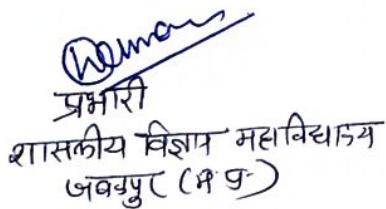 प्रभारी
शासकीय विज्ञान महाविद्यालय
जबलपुर (म प्र)